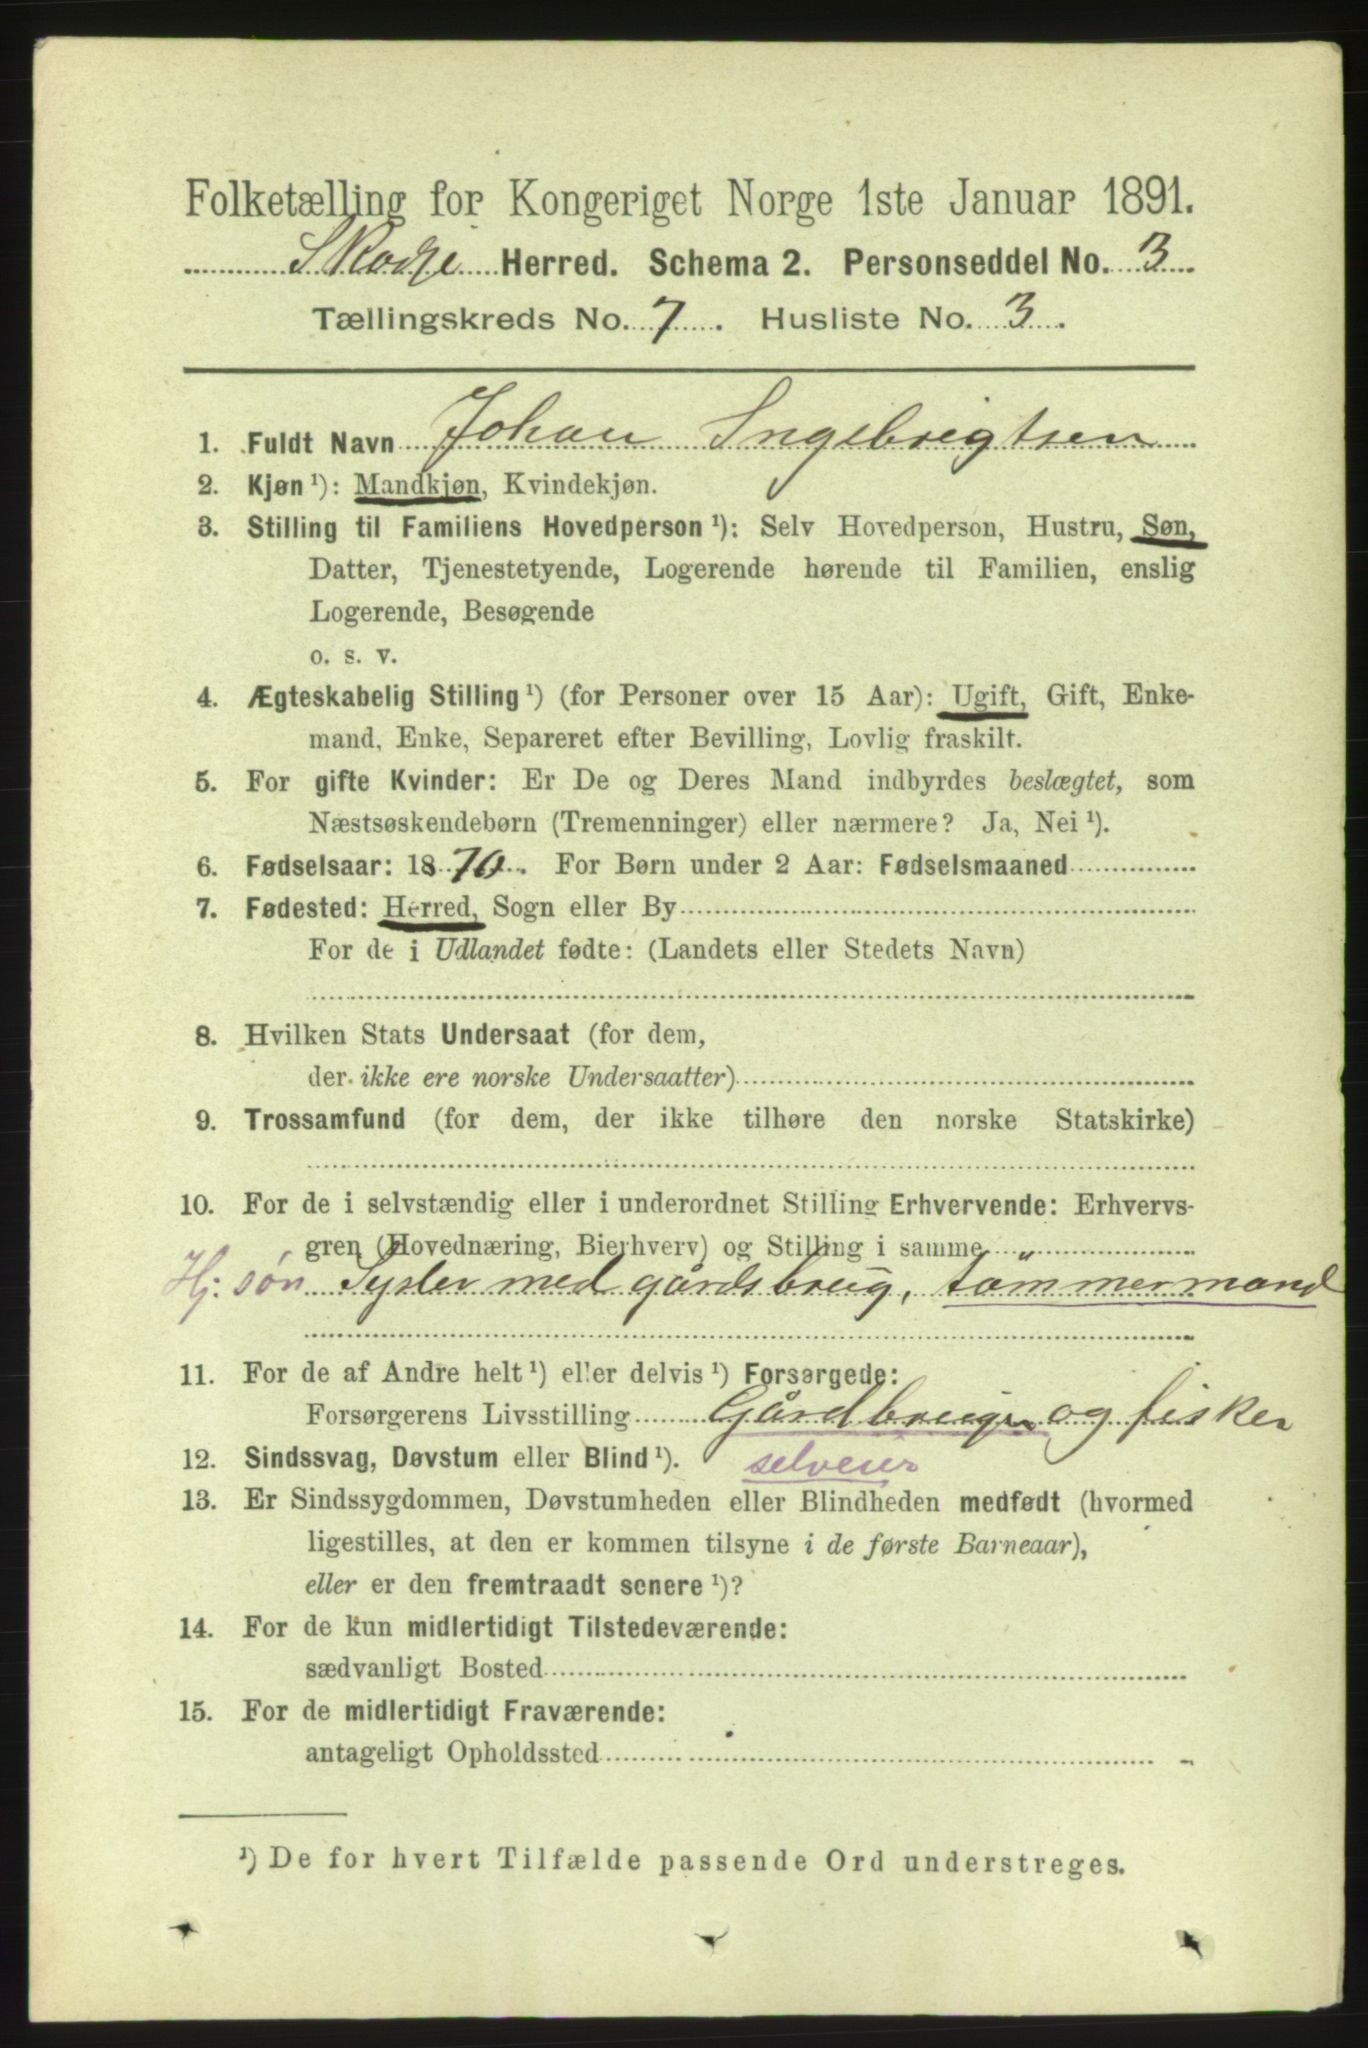 Folketælling for Kongeriget Norge 1ste Januar 1891.
Skodje Herred. Schema 2. Personseddel No. 3
Tællingskreds No. 7. Husliste No. 3.
1. Fuldt Navn Johan Ingebrigtsen
2. Kjøn ¹): Mandkjøn, Kvindekjøn.
3. Stilling til Familiens Hovedperson ¹): Selv Hovedperson, Hustru, Søn,
Datter, Tjenestetyende, Logerende hørende til Familien, enslig
Logerende, Besøgende
o. s. v.
4. Ægteskabelig Stilling ¹) (for Personer over 15 Aar): Ugift, Gift, Enke-
mand, Enke, Separeret efter Bevilling, Lovlig fraskilt.
5. For gifte Kvinder: Er De og Deres Mand indbyrdes beslægtet, som
Næstsøskendebørn (Tremenninger) eller nærmere? Ja, Nei ¹).
6. Fødselsaar: 1870. For Børn under 2 Aar: Fødselsmaaned
7. Fødested: Herred, Sogn eller By
For de i Udlandet fødte: (Landets eller Stedets Navn)
8. Hvilken Stats Undersaat (for dem,
der ikke ere norske Undersaatter)
9. Trossamfund (for dem, der ikke tilhøre den norske Statskirke)
10. For de i selvstændig eller i underordnet Stilling Erhvervende: Erhvervs-
gren (Hovednæring, Bierhverv) og Stilling i samme
Hj: søn Sysler med gårdsbrug, tömmermand
11. For de af Andre helt ¹) eller delvis ¹) Forsørgede:
Forsørgerens Livsstilling Gårdbruger og fisker
12. Sindssvag, Døvstum eller Blind ¹). selveier
13. Er Sindssygdommen, Døvstumheden eller Blindheden medfødt (hvormed
ligestilles, at den er kommen tilsyne i de første Barneaar),
eller er den fremtraadt senere ¹)?
14. For de kun midlertidigt Tilstedeværende:
sædvanligt Bosted
15. For de midlertidigt Fraværende:
antageligt Opholdssted
¹) De for hvert Tilfælde passende Ord understreges.